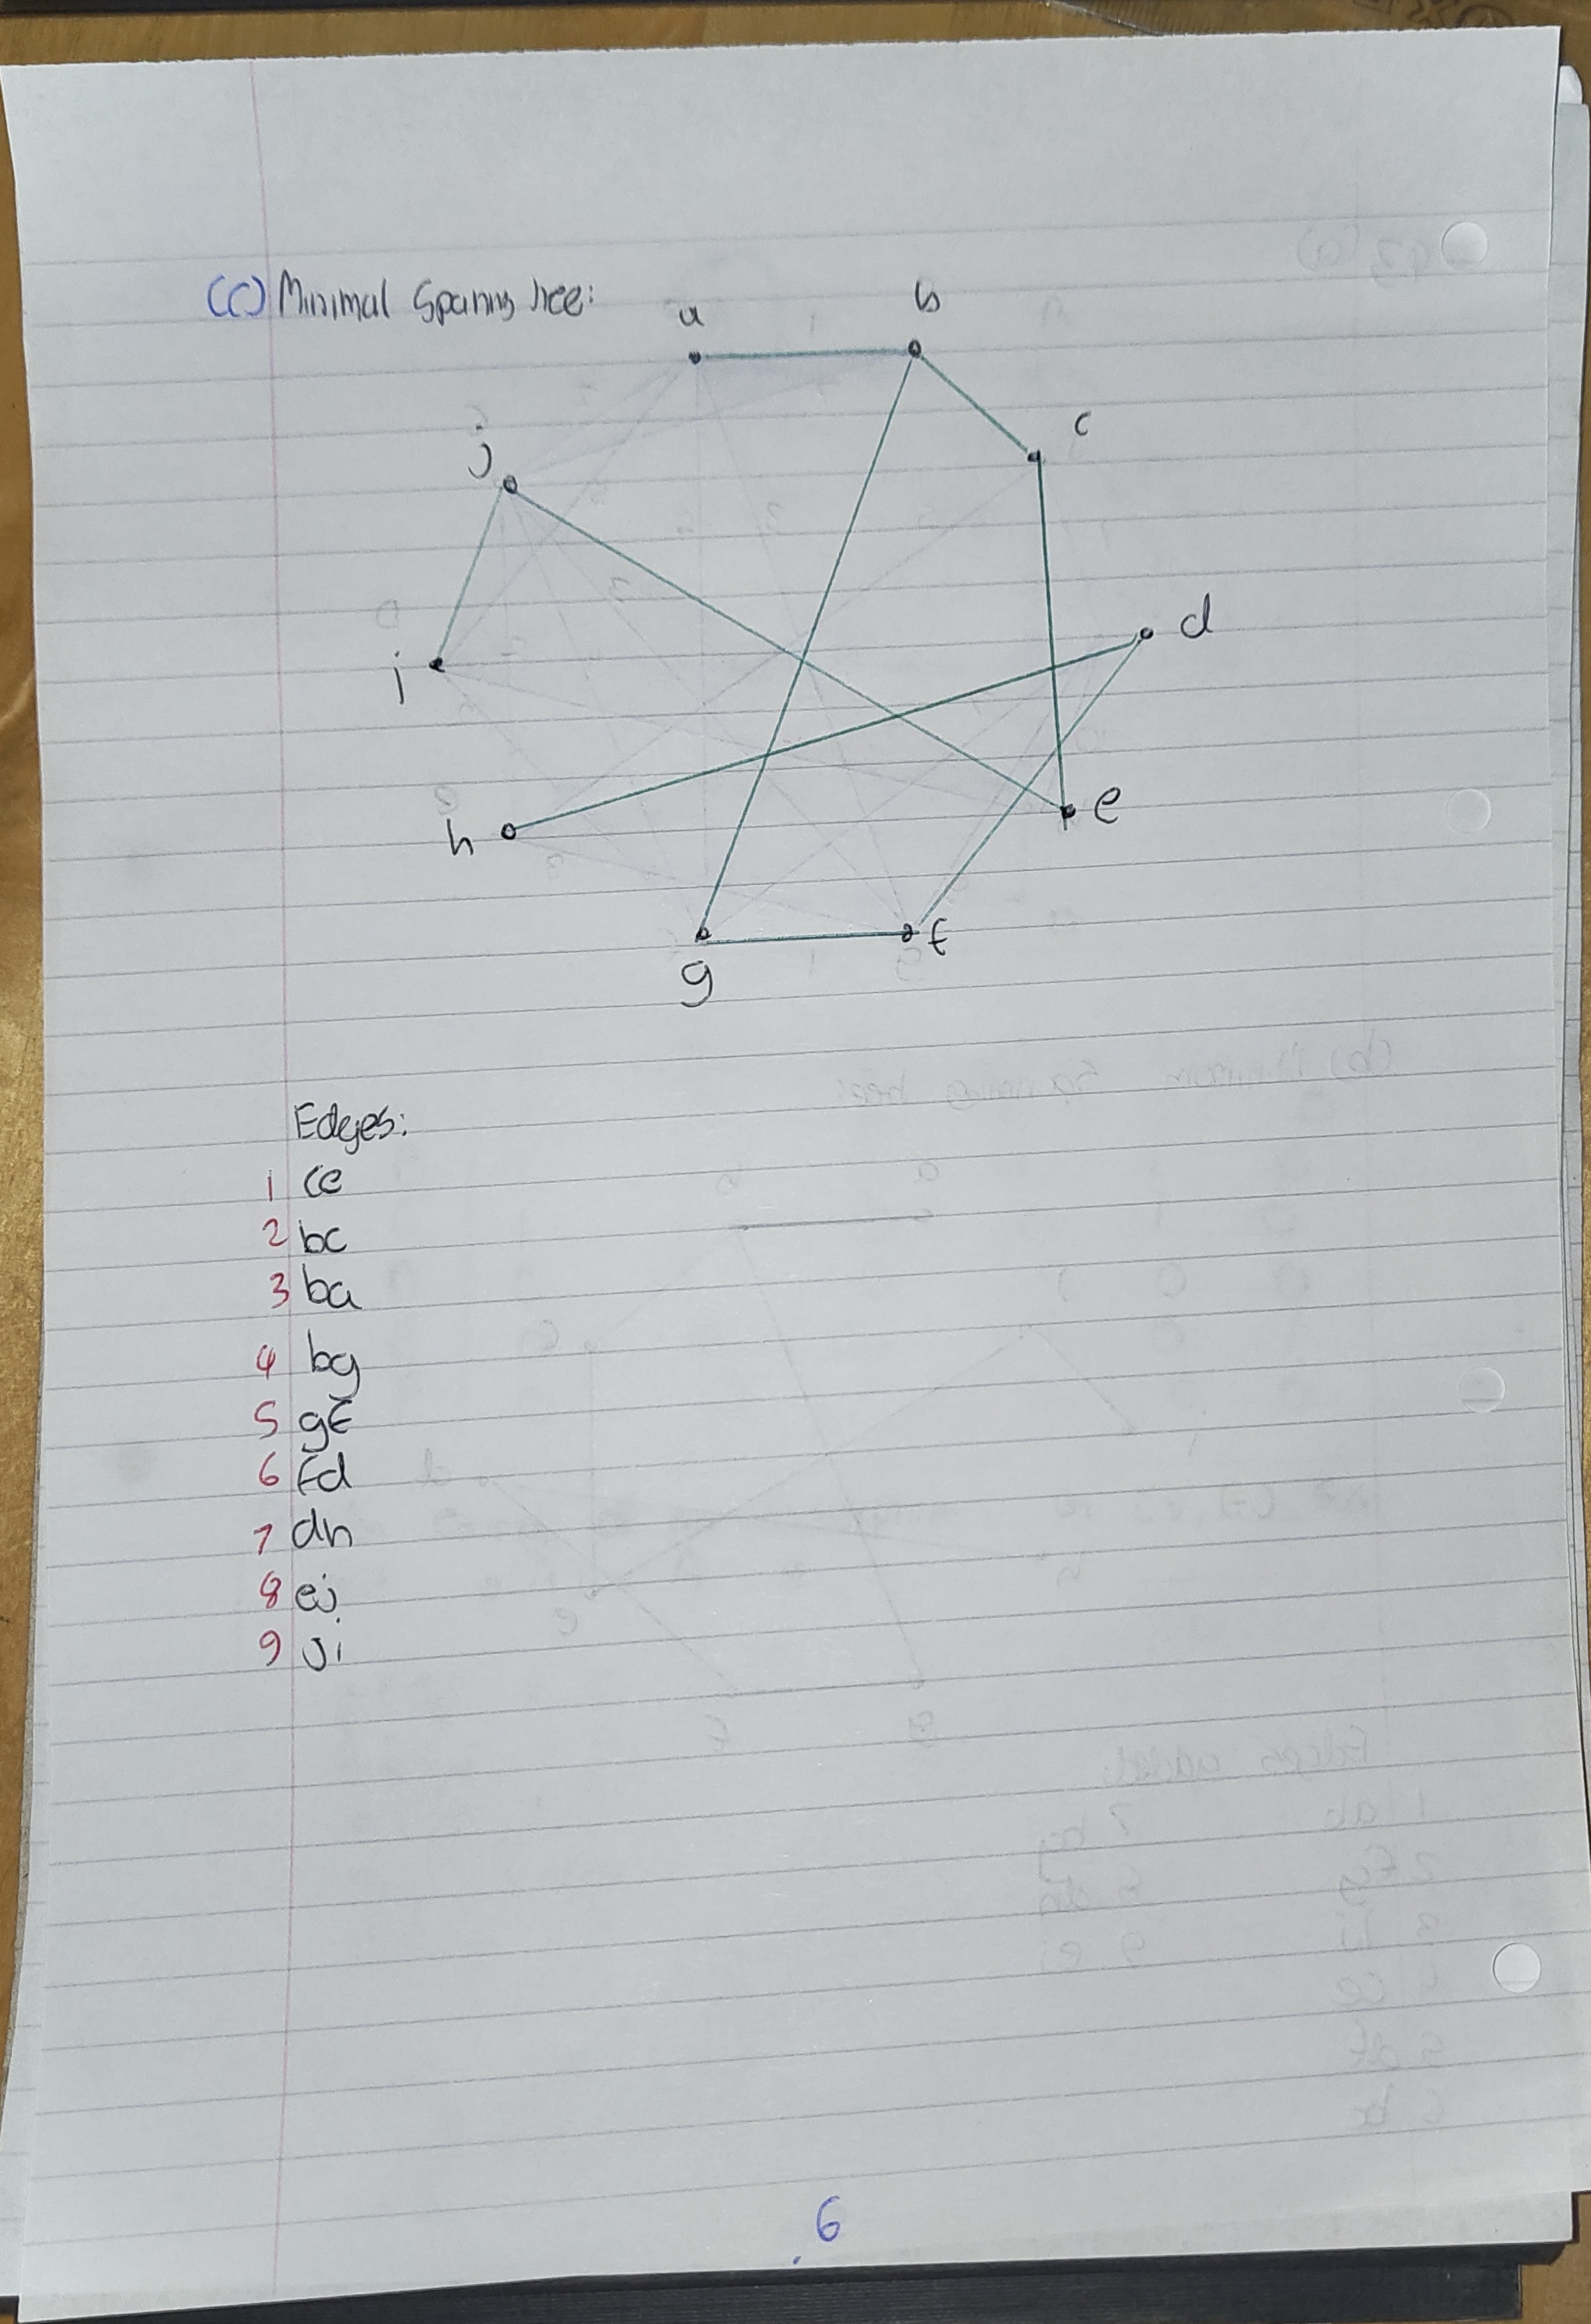 (c) Minimal Spannig tree:
a
b
c
j
d
i
e
h
f
g
Edges:
1 ce
2 bc
3 ba
4 bg
5 gf
6 fd
7 dh
8 ej
9 ji
6